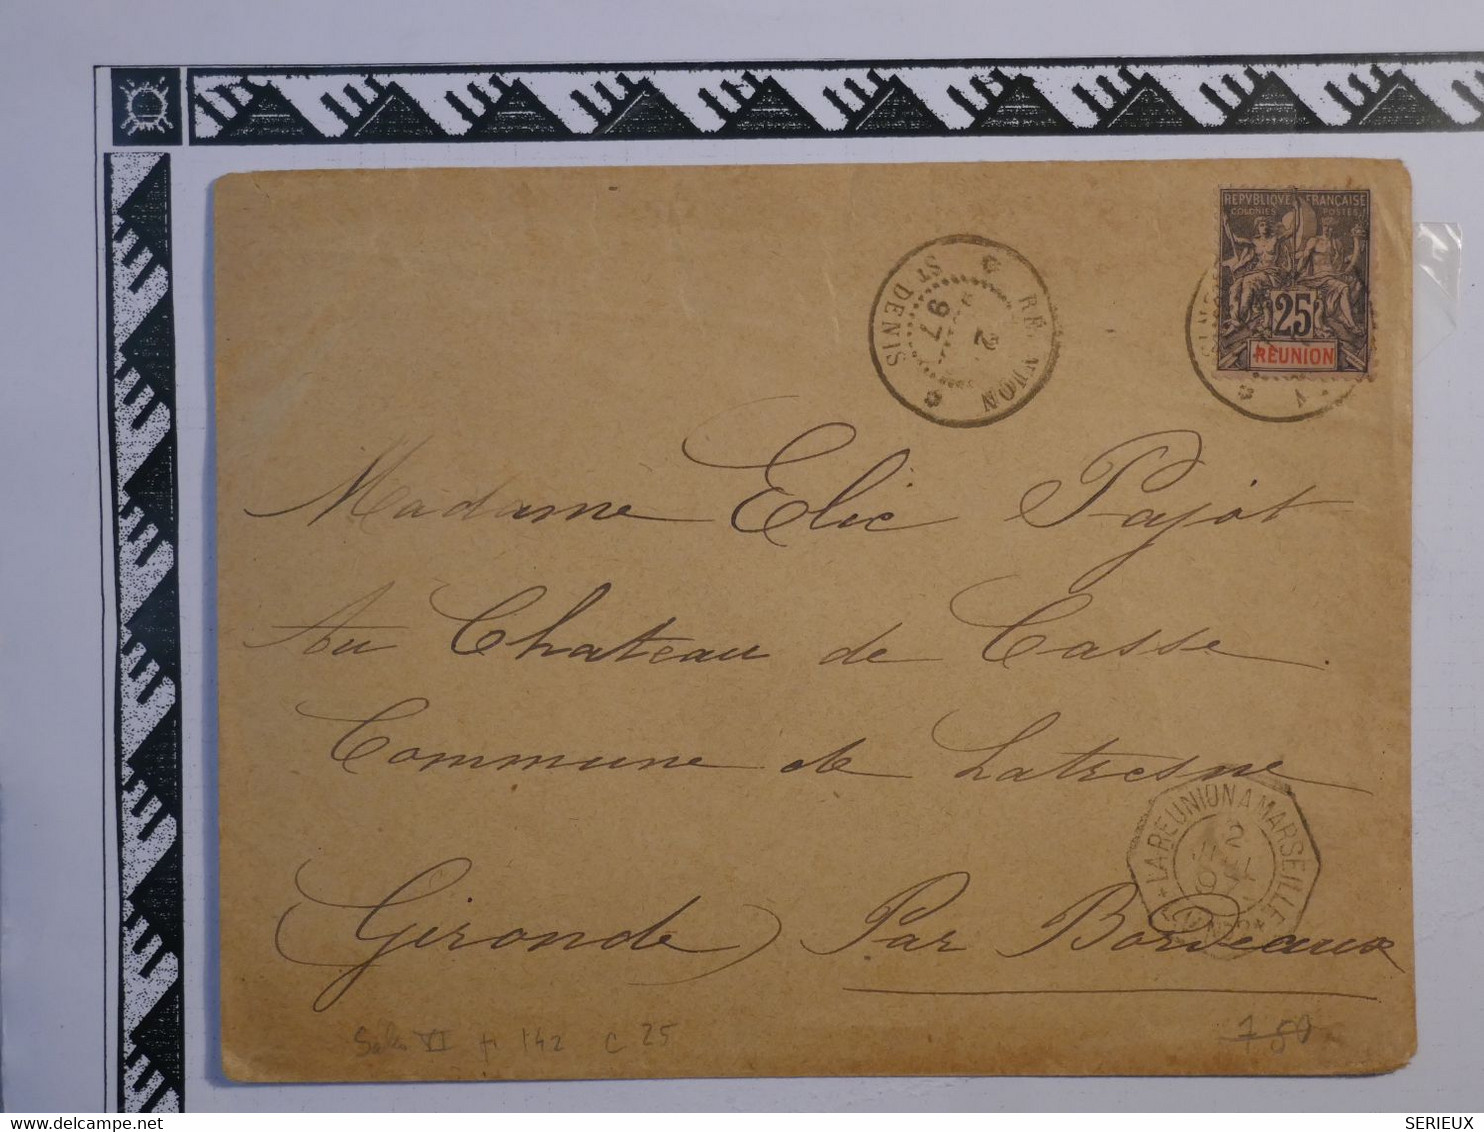 REPVBLIQVE FRANÇAISE
COLONIES POSTES
25
RÉUNION
RÉUNION
2
97
ST DENIS
Madame Elie Pajot
Au Chateau de Casse
Commune de Latresne
LA REUNION A MARSEILLE
2
(Gironde) Par Bordeaux
VI 142 c 25
750
SERIEUX